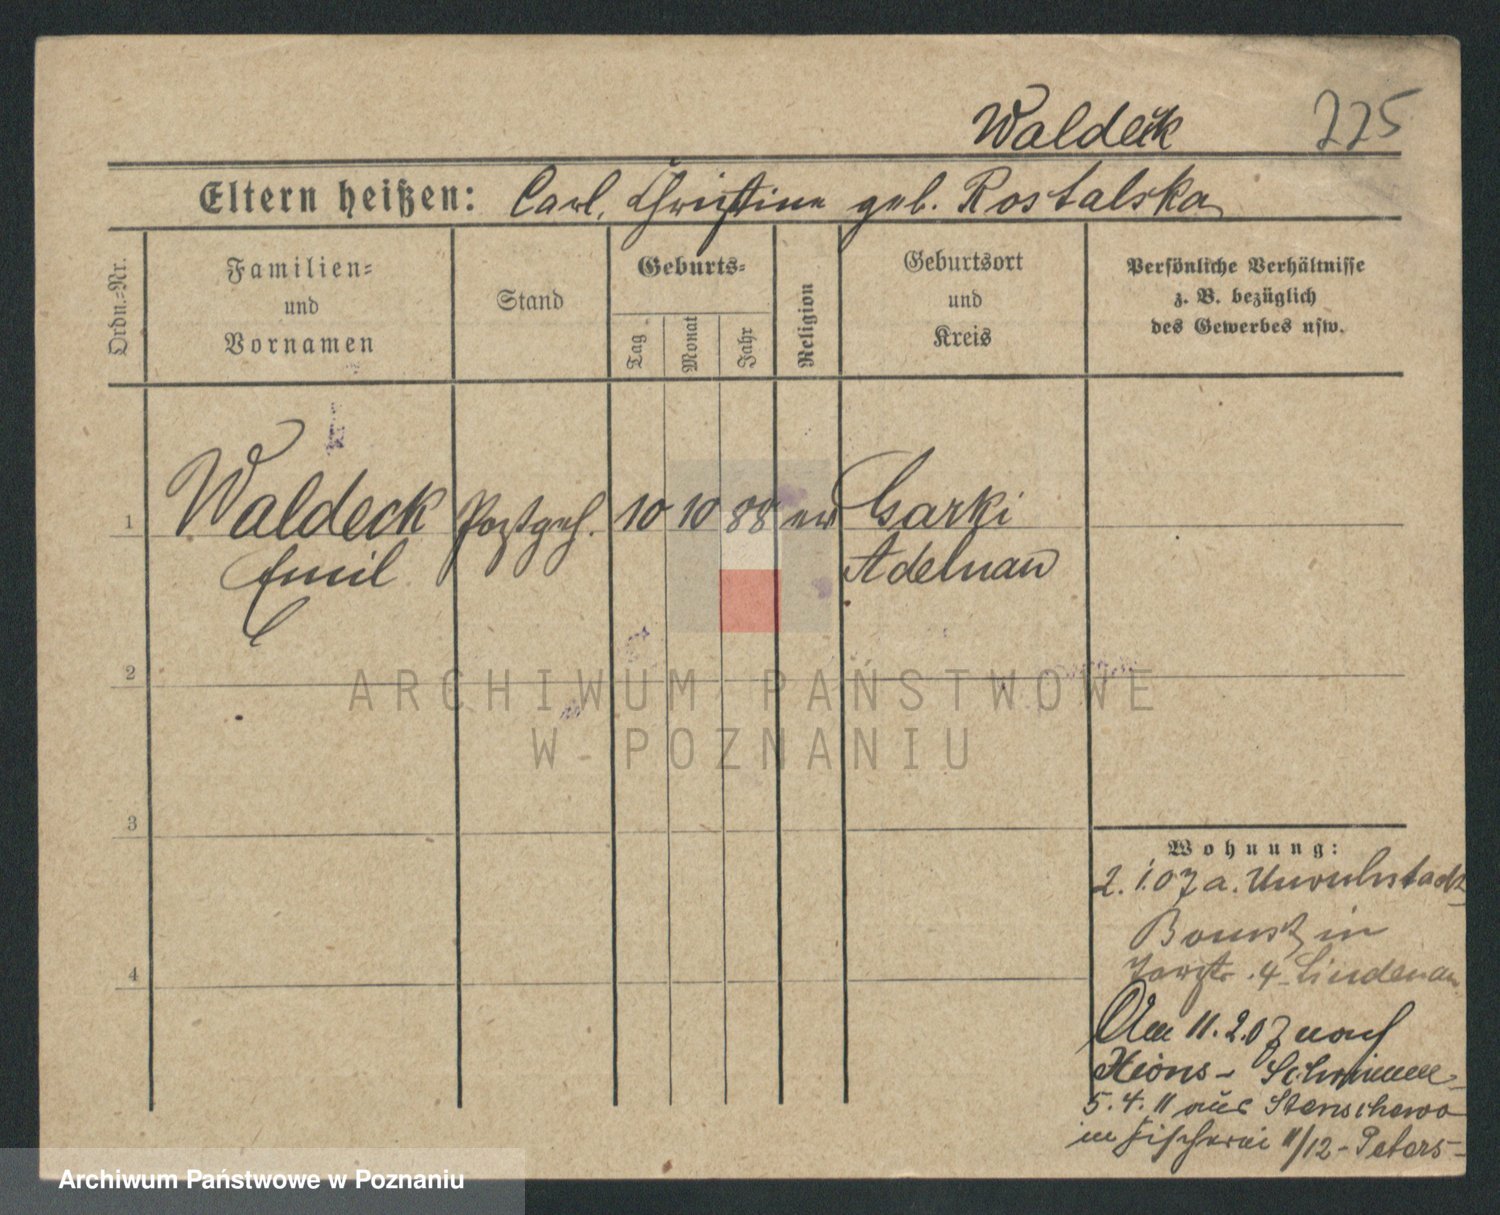 Waldeck 225
Eltern heißen: Carl, Christine geb. Rostalska
Ordn.-Nr.
Familien-
und
Vornamen
Stand
Geburts-
Tag
Monat
Jahr
Religion
Geburtsort
und
Kreis
Persönliche Verhältnisse
z. B. bezüglich
des Gewerbes usw.
1 Waldeck Postgeh. 10 10 88 ev Garki
Emil Adelnau
2
ARCHIWUM PAŃSTWOWE
W POZNANIU
3
4
Wohnung:
2. 1. 07 a. Unruhstadt
Bomst in
4 Lindenau
Am 11. 2. 07 nach
Xions- Schrimm
5. 4. 11 aus Stenschewo
in Fischerei 11/12 - Peters-
Archiwum Państwowe w Poznaniu